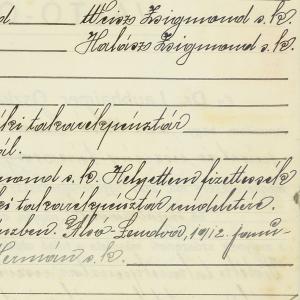 d Weisz Zsigmond s. k.
Halász Zsigmond s. k.
éki takarékpénztár
ál.
mond s. k. Helyettem fizettessék
ki takarékpénztár rendeletére.
szben. Alsó-Lendva, 1912. janu-
Hermán s. k.